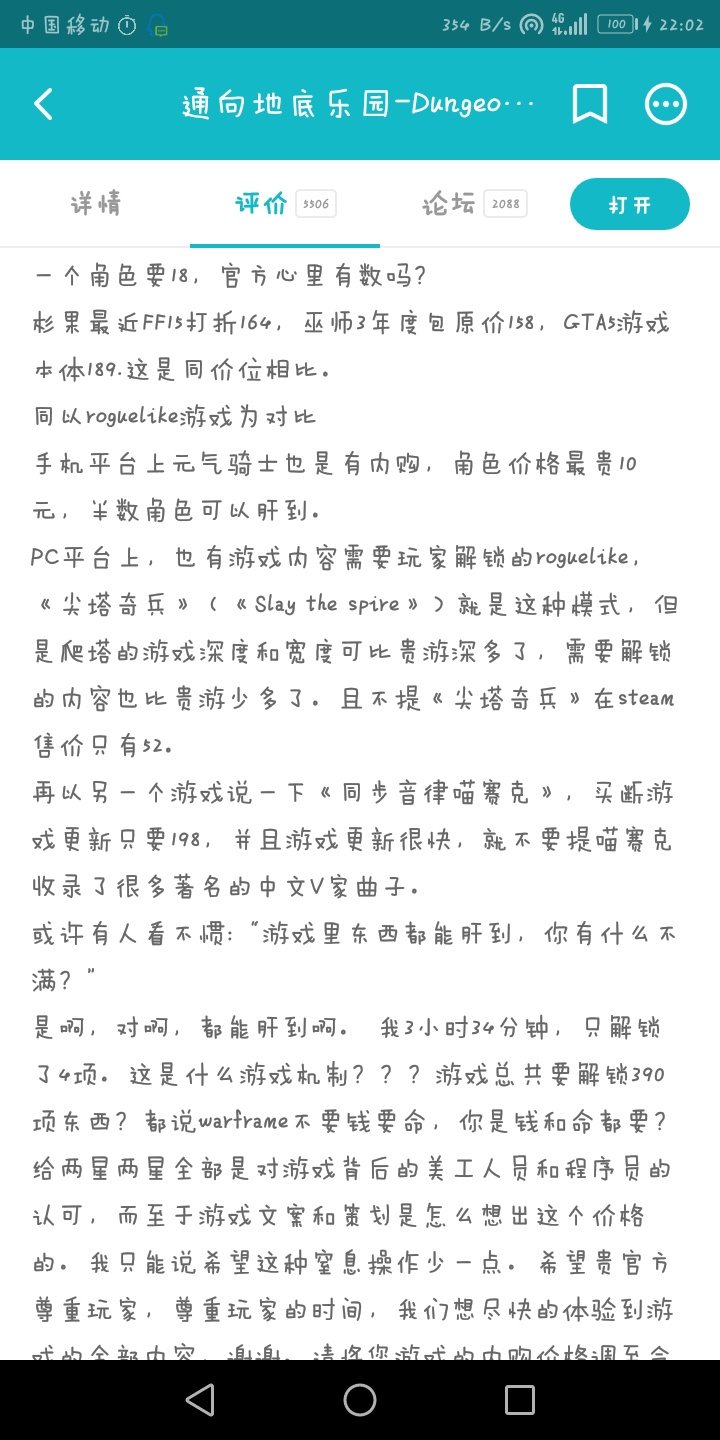 中国移动 354 B/s 4G 100 22:02
通向地底乐园-Dungeo…
详情 评价 5506 论坛 2088 打开
一个角色要18，官方心里有数吗？
杉果最近FF15打折164，巫师3年度包原价158，GTA5游戏
本体189.这是同价位相比。
同以roguelike游戏为对比
手机平台上元气骑士也是有内购，角色价格最贵10
元，半数角色可以肝到。
PC平台上，也有游戏内容需要玩家解锁的roguelike，
《尖塔奇兵》（《Slay the spire》）就是这种模式，但
是爬塔的游戏深度和宽度可比贵游深多了，需要解锁
的内容也比贵游少多了。且不提《尖塔奇兵》在steam
售价只有52。
再以另一个游戏说一下《同步音律喵赛克》，买断游
戏更新只要198，并且游戏更新很快，就不要提喵赛克
收录了很多著名的中文V家曲子。
或许有人看不惯:“游戏里东西都能肝到，你有什么不
满？”
是啊，对啊，都能肝到啊。 我3小时34分钟，只解锁
了4项。这是什么游戏机制？？？游戏总共要解锁390
项东西？都说warframe不要钱要命，你是钱和命都要？
给两星两星全部是对游戏背后的美工人员和程序员的
认可，而至于游戏文案和策划是怎么想出这个价格
的。我只能说希望这种窒息操作少一点。希望贵官方
尊重玩家，尊重玩家的时间，我们想尽快的体验到游
戏的全部内容，谢谢。请将您游戏的内购价格调至合